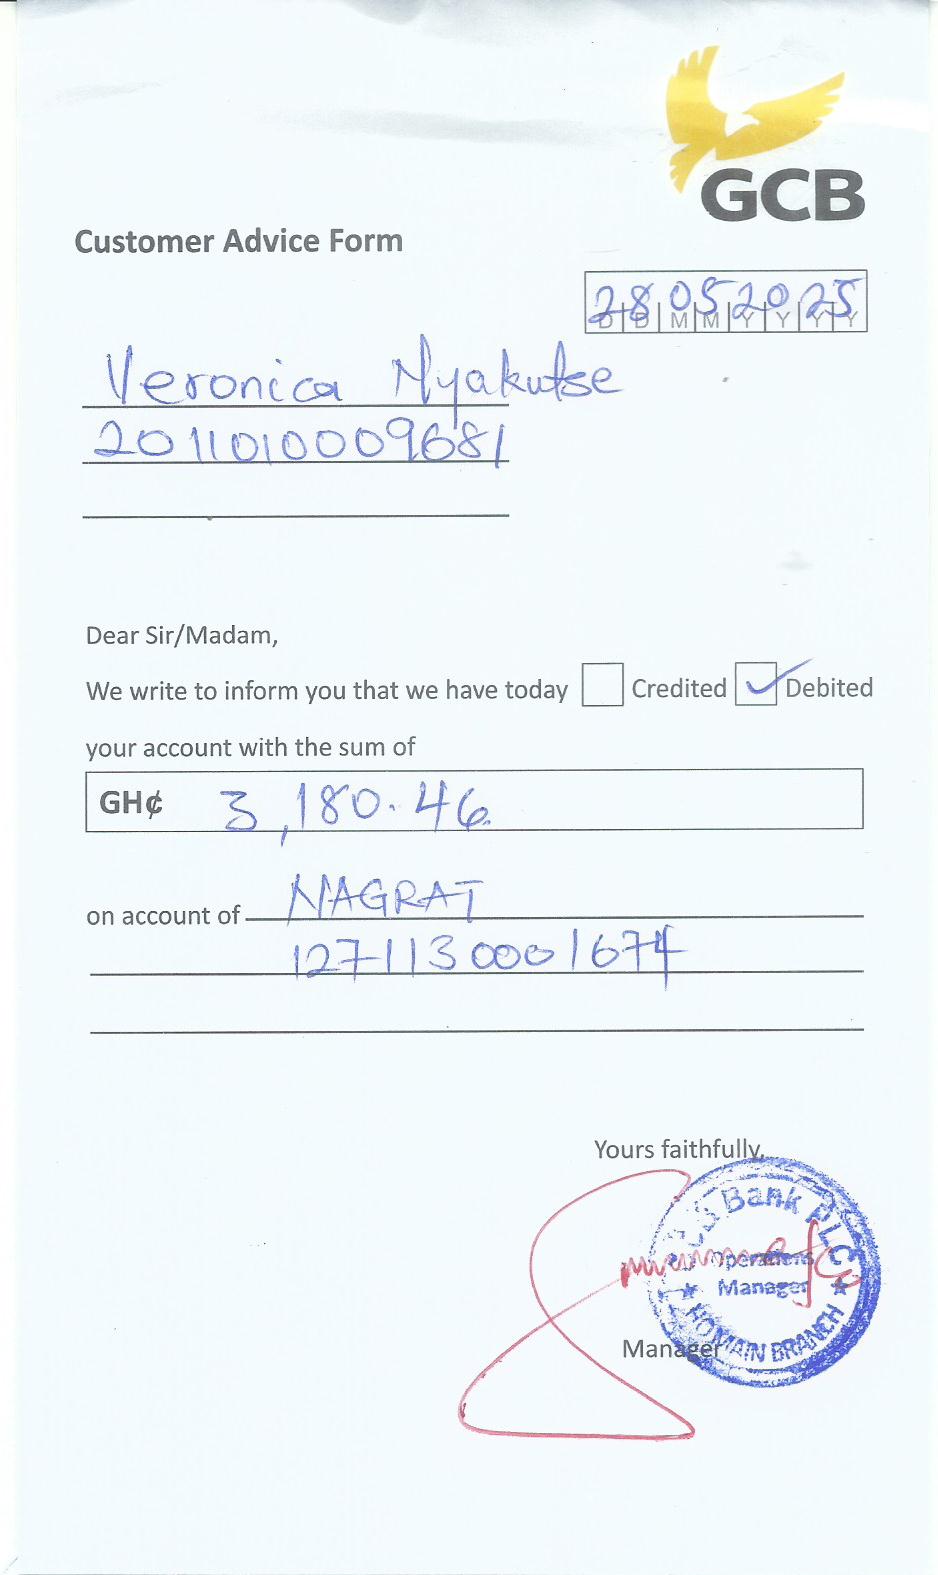 GCB
Customer Advice Form
28 05 2025
D D M M Y Y Y Y
Veronica Nyakutse
2011010009681
Dear Sir/Madam,
We write to inform you that we have today Credited ✓ Debited
your account with the sum of
GH¢ 3,180.46
on account of NAGRAT
1271130001674
Yours faithfully,
Bank PLC
Operations
Manager
HO MAIN BRANCH
Manager